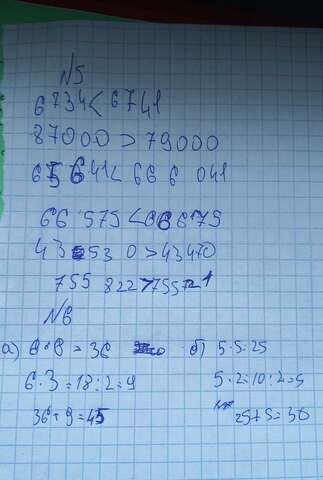 N5
6734<6741
87000>79000
65641<666 041
66 575<66675
43 53 0>43470
755 822>755721
N6
а) 6·6=36 б) 5·5=25
6·3=18:2=9 5·2=10:2=5
36+9=45 25+5=30